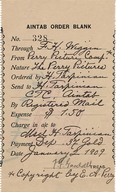 AINTAB ORDER BLANK
No. 328
Through F. H. Wiggin
From Perry Picture Comp.
Nature The Perry Pictures
Ordered by H. Terpinian
Send to H. Terpinian
C.T.C. Aintab
By Registered Mail
Expense $ 7.50
Charge in a/c to
Messrs H. Terpinian
Payment Sep. 11
January 1 1909
Copyright by E. A. Perry